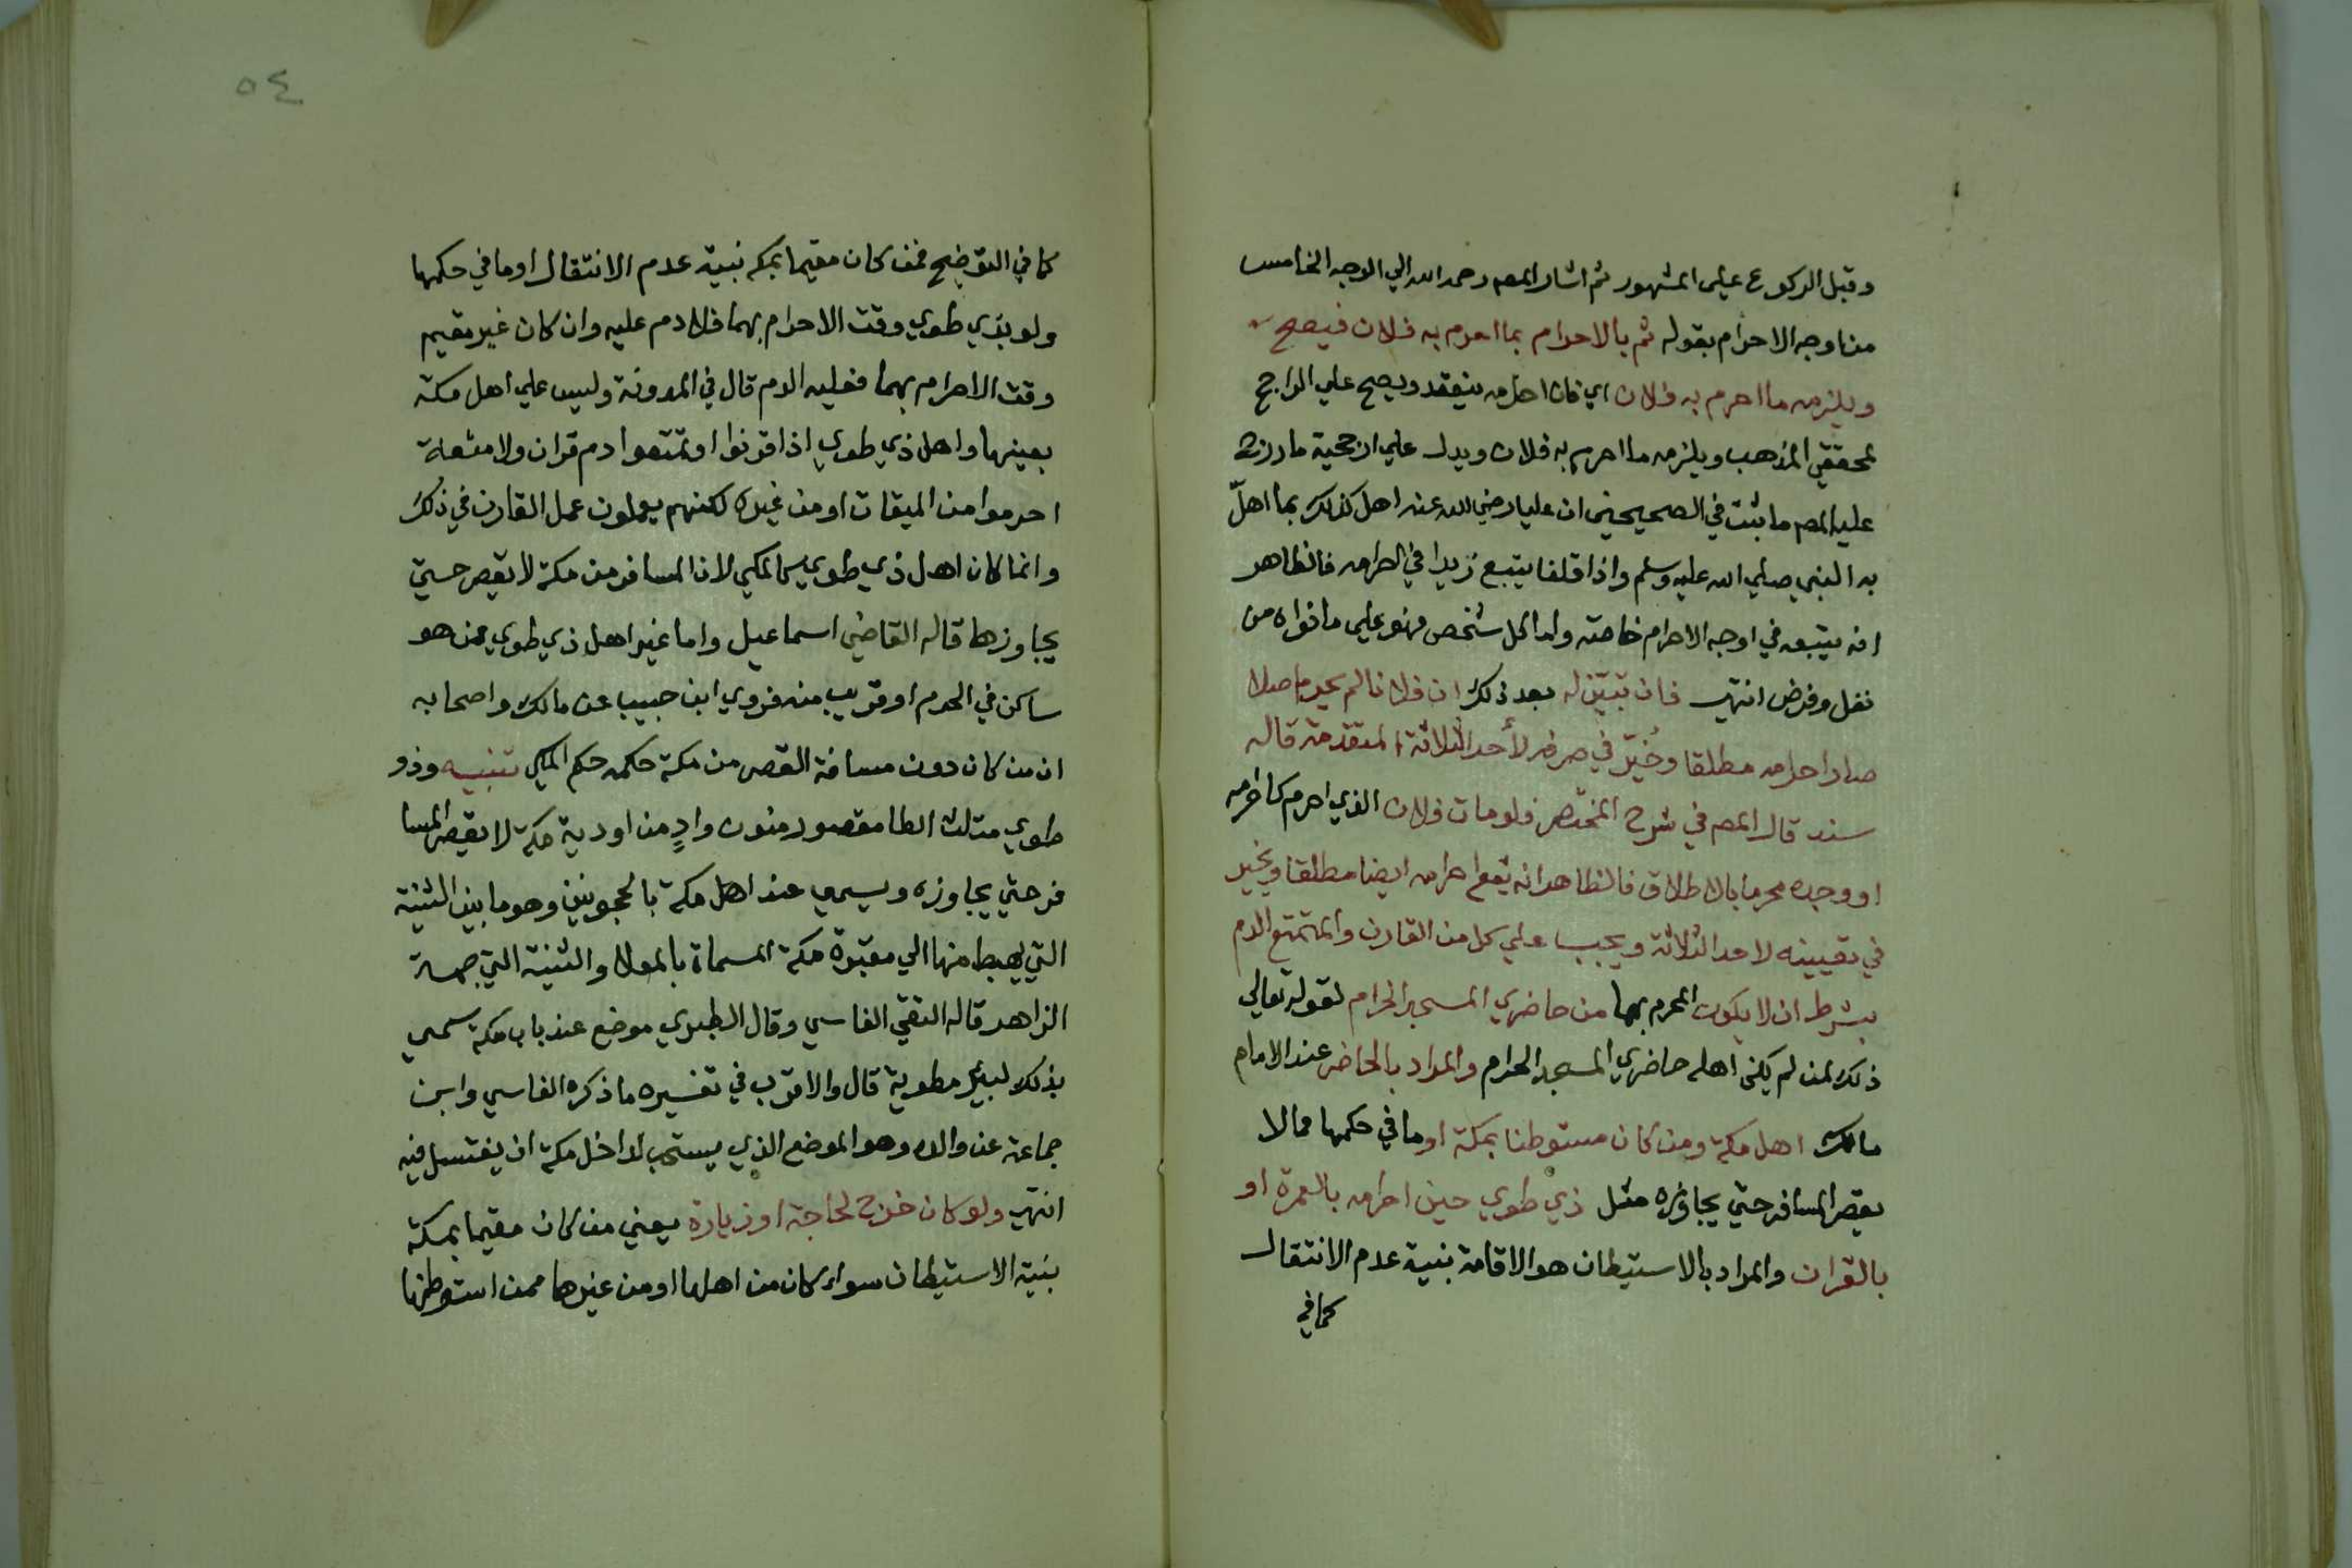 وقبل الركوع على المشهور ثم اشار المص رحمه الله الي الوجه الخامس
من اوجه الاحرام بقوله ثم بالاحرام بما احرم به فلان فيصح
ويلزمه ما احرم به فلان اي فان احرامه ينعقد ويصح علي الراجح
لمحققي المذهب ويلزمه ما احرم به فلان ويدل علي ارجحية ما درج
عليه المص ما ثبت في الصحيحين ان عليا رضي الله عنه اهل كذلك بما اهلّ
به النبي صلي الله عليه وسلم واذا قلنا يتبع زيدا في احرامه فالظاهر
انه يتبعه في اوجه الاحرام خاصة واما كل شخص فهو علي ما نواه من
نفل وفرض انتهي فان تبيّن له بعد ذلك ان فلانا لم يحرم اصلا
صار احرامه مطلقا وخُيّر في صرفه لأحد الثلاثة المتقدمة قاله
سند قال المص في شرح المختصر فلو مات فلان الذي احرم كاحرامه
او وجده محرما بالاطلاق فالظاهر انه يقع احرامه ايضا مطلقا ويخير
في تعيينه لاحد الثلاثة ويجب علي كل من القارن والمتمتع الدم
بشرط ان لا يكون المحرم بهما من حاضري المسجد الحرام لقوله تعالي
ذلك لمن لم يكن اهله حاضري المسجد الحرام والمراد بالحاضر عند الامام
مالك اهل مكة ومن كان مستوطنا بمكة او ما في حكمها مما لا
يقصر المسافر حتي يجاوزه مثل ذي طوي حين احرامه بالعمرة او
بالقران والمراد بالاستيطان هو الاقامة بنية عدم الانتقال
كما في
٥٤
كما في التوضيح فمن كان مقيما بمكه بنية عدم الانتقال او ما في حكمها
ولو بذي طوي وقت الاحرام بهما فلا دم عليه وان كان غير مقيم
وقت الاحرام بهما فعليه الدم قال في المدونة وليس علي اهل مكة
بعينها واهل ذي طوي اذا قرنوا او تمتعوا دم قران ولا متعة
احرموا من الميقات او من غيره لكنهم يعملون عمل القارن في ذلك
وانما كان اهل ذي طوي كالمكي لان المسافر من مكة لا يقصر حتي
يجاوزها قاله القاضي اسماعيل واما غير اهل ذي طوي ممن هو
ساكن في الحرم او قريب منه فروي ابن حبيب عن مالك واصحابه
ان من كان دون مسافة القصر من مكة حكمه حكم المكي تنبيه وذو
طوي مثلث الطا مقصور منون وادٍ من اودية مكة لا يقصر المسا
فر حتي يجاوزه ويسمي عند اهل مكة بالحجونين وهو ما بين الثنية
التي يهبط منها الي مقبرة مكة المسماة بالمعلا والثنية التي جهة
الزاهر قاله التقي الفاسي وقال الطبري موضع عند باب مكة سمي
بذلك لبئر مطوية قال والاقرب في تفسيره ما ذكره الفاسي وابن
جماعة عن والده وهو الموضع الذي يستحب لداخل مكة ان يغتسل فيه
انتهي ولو كان خرج لحاجة او زيارة يعني من كان مقيما بمكة
بنية الاستيطان سواء كان من اهلها او من غيرها ممن استوطنها